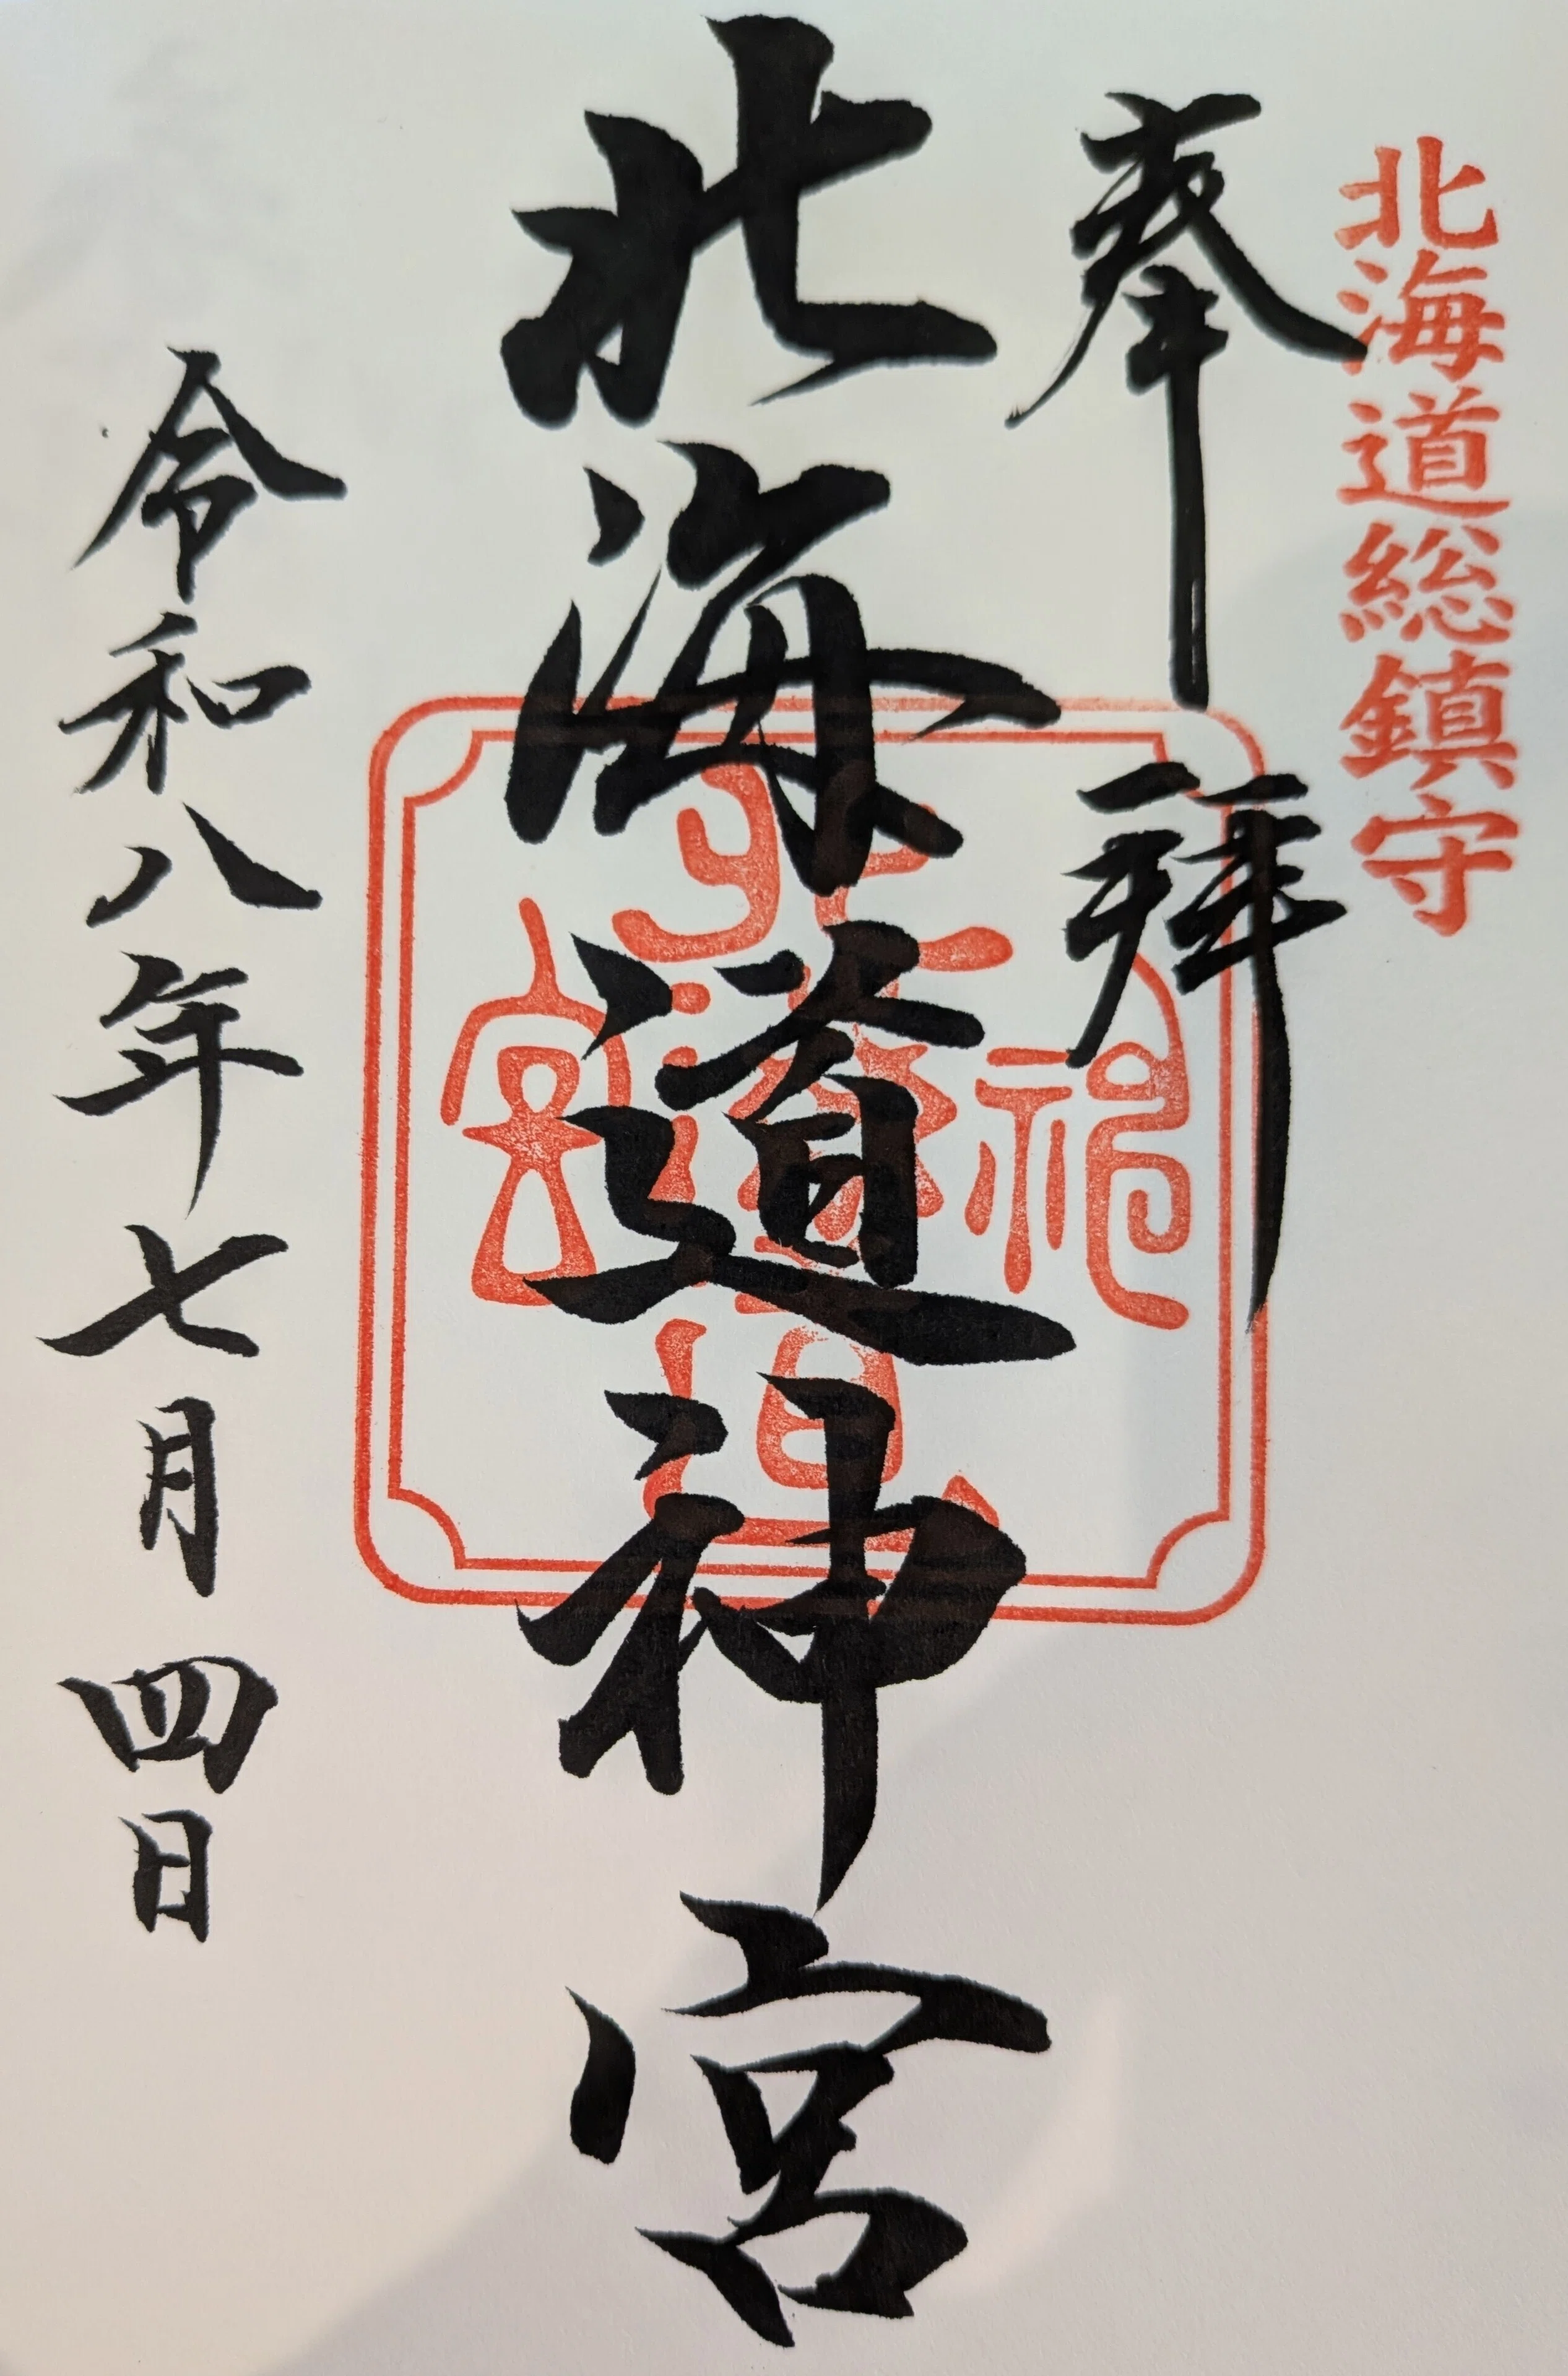 北海道総鎮守
奉拝
北海道神宮
令和八年七月四日